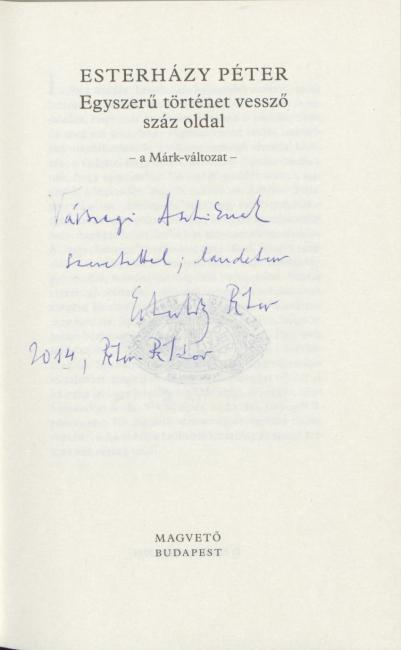 ESTERHÁZY PÉTER
Egyszerű történet vessző
száz oldal
– a Márk-változat –
Várszegi Asztriknak
szeretettel; laudetur
Esterházy Péter
2014, Péter-Pál
MAGVETŐ
BUDAPEST